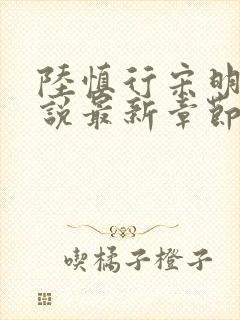 陸慎行宋明
說最新章節
喫橘子橙子